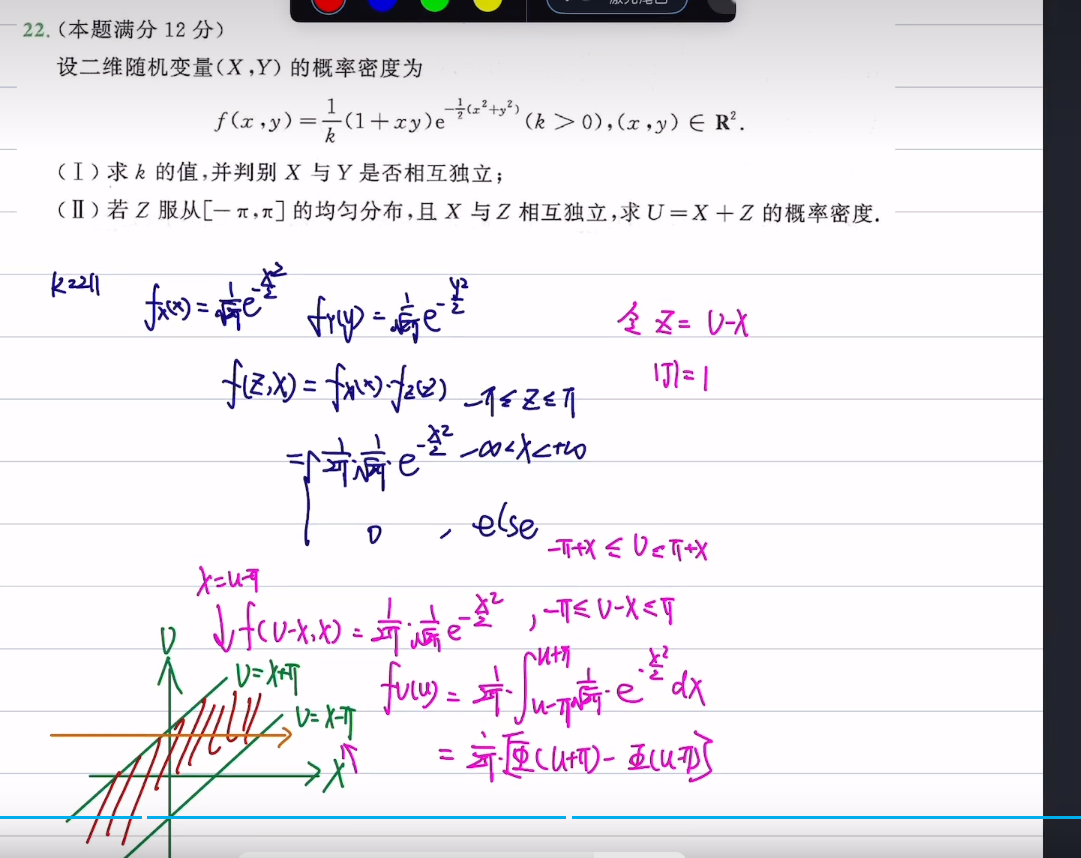 22.(本题满分 12 分)
设二维随机变量(X,Y) 的概率密度为
f(x,y)=\frac{1}{k}(1+xy)e^{-\frac{1}{2}(x²+y²)}(k>0),(x,y)∈R².
(Ⅰ)求 k 的值,并判别 X 与 Y 是否相互独立;
(Ⅱ)若 Z 服从[-π,π]的均匀分布,且 X 与 Z 相互独立,求 U=X+Z 的概率密度.
k=2π
f_X(x)=\frac{1}{\sqrt{2π}}e^{-\frac{x²}{2}} f_Y(y)=\frac{1}{\sqrt{2π}}e^{-\frac{y²}{2}}
令 Z=U-X
|J|=1
f(Z,X)=f_X(x)·f_Z(z) -π≤Z≤π
=\frac{1}{2π}·\frac{1}{\sqrt{2π}}·e^{-\frac{x²}{2}} -∞<X<+∞
0 , else
-π+X≤U≤π+X
X=u-π
f(U-X,X)=\frac{1}{2π}·\frac{1}{\sqrt{2π}}e^{-\frac{x²}{2}} ,-π≤U-X≤π
U
U=X+π
U=X-π
X
f_U(u)=\frac{1}{2π}·∫_{u-π}^{u+π}\frac{1}{\sqrt{2π}}·e^{-\frac{x²}{2}}dx
=\frac{1}{2π}·[Φ(u+π)-Φ(u-π)]